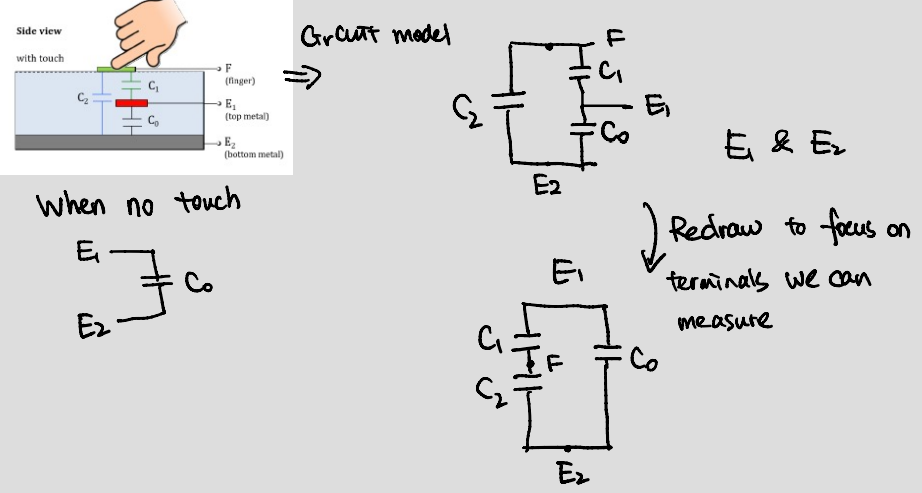 Side view
with touch
F
(finger)
C₁
C₂
E₁
(top metal)
C₀
E₂
(bottom metal)
Circuit model
F
C₁
C₂
E₁
C₀
E₂
E₁ & E₂
When no touch
E₁
C₀
E₂
Redraw to focus on
terminals we can
measure
E₁
C₁
F
C₀
C₂
E₂